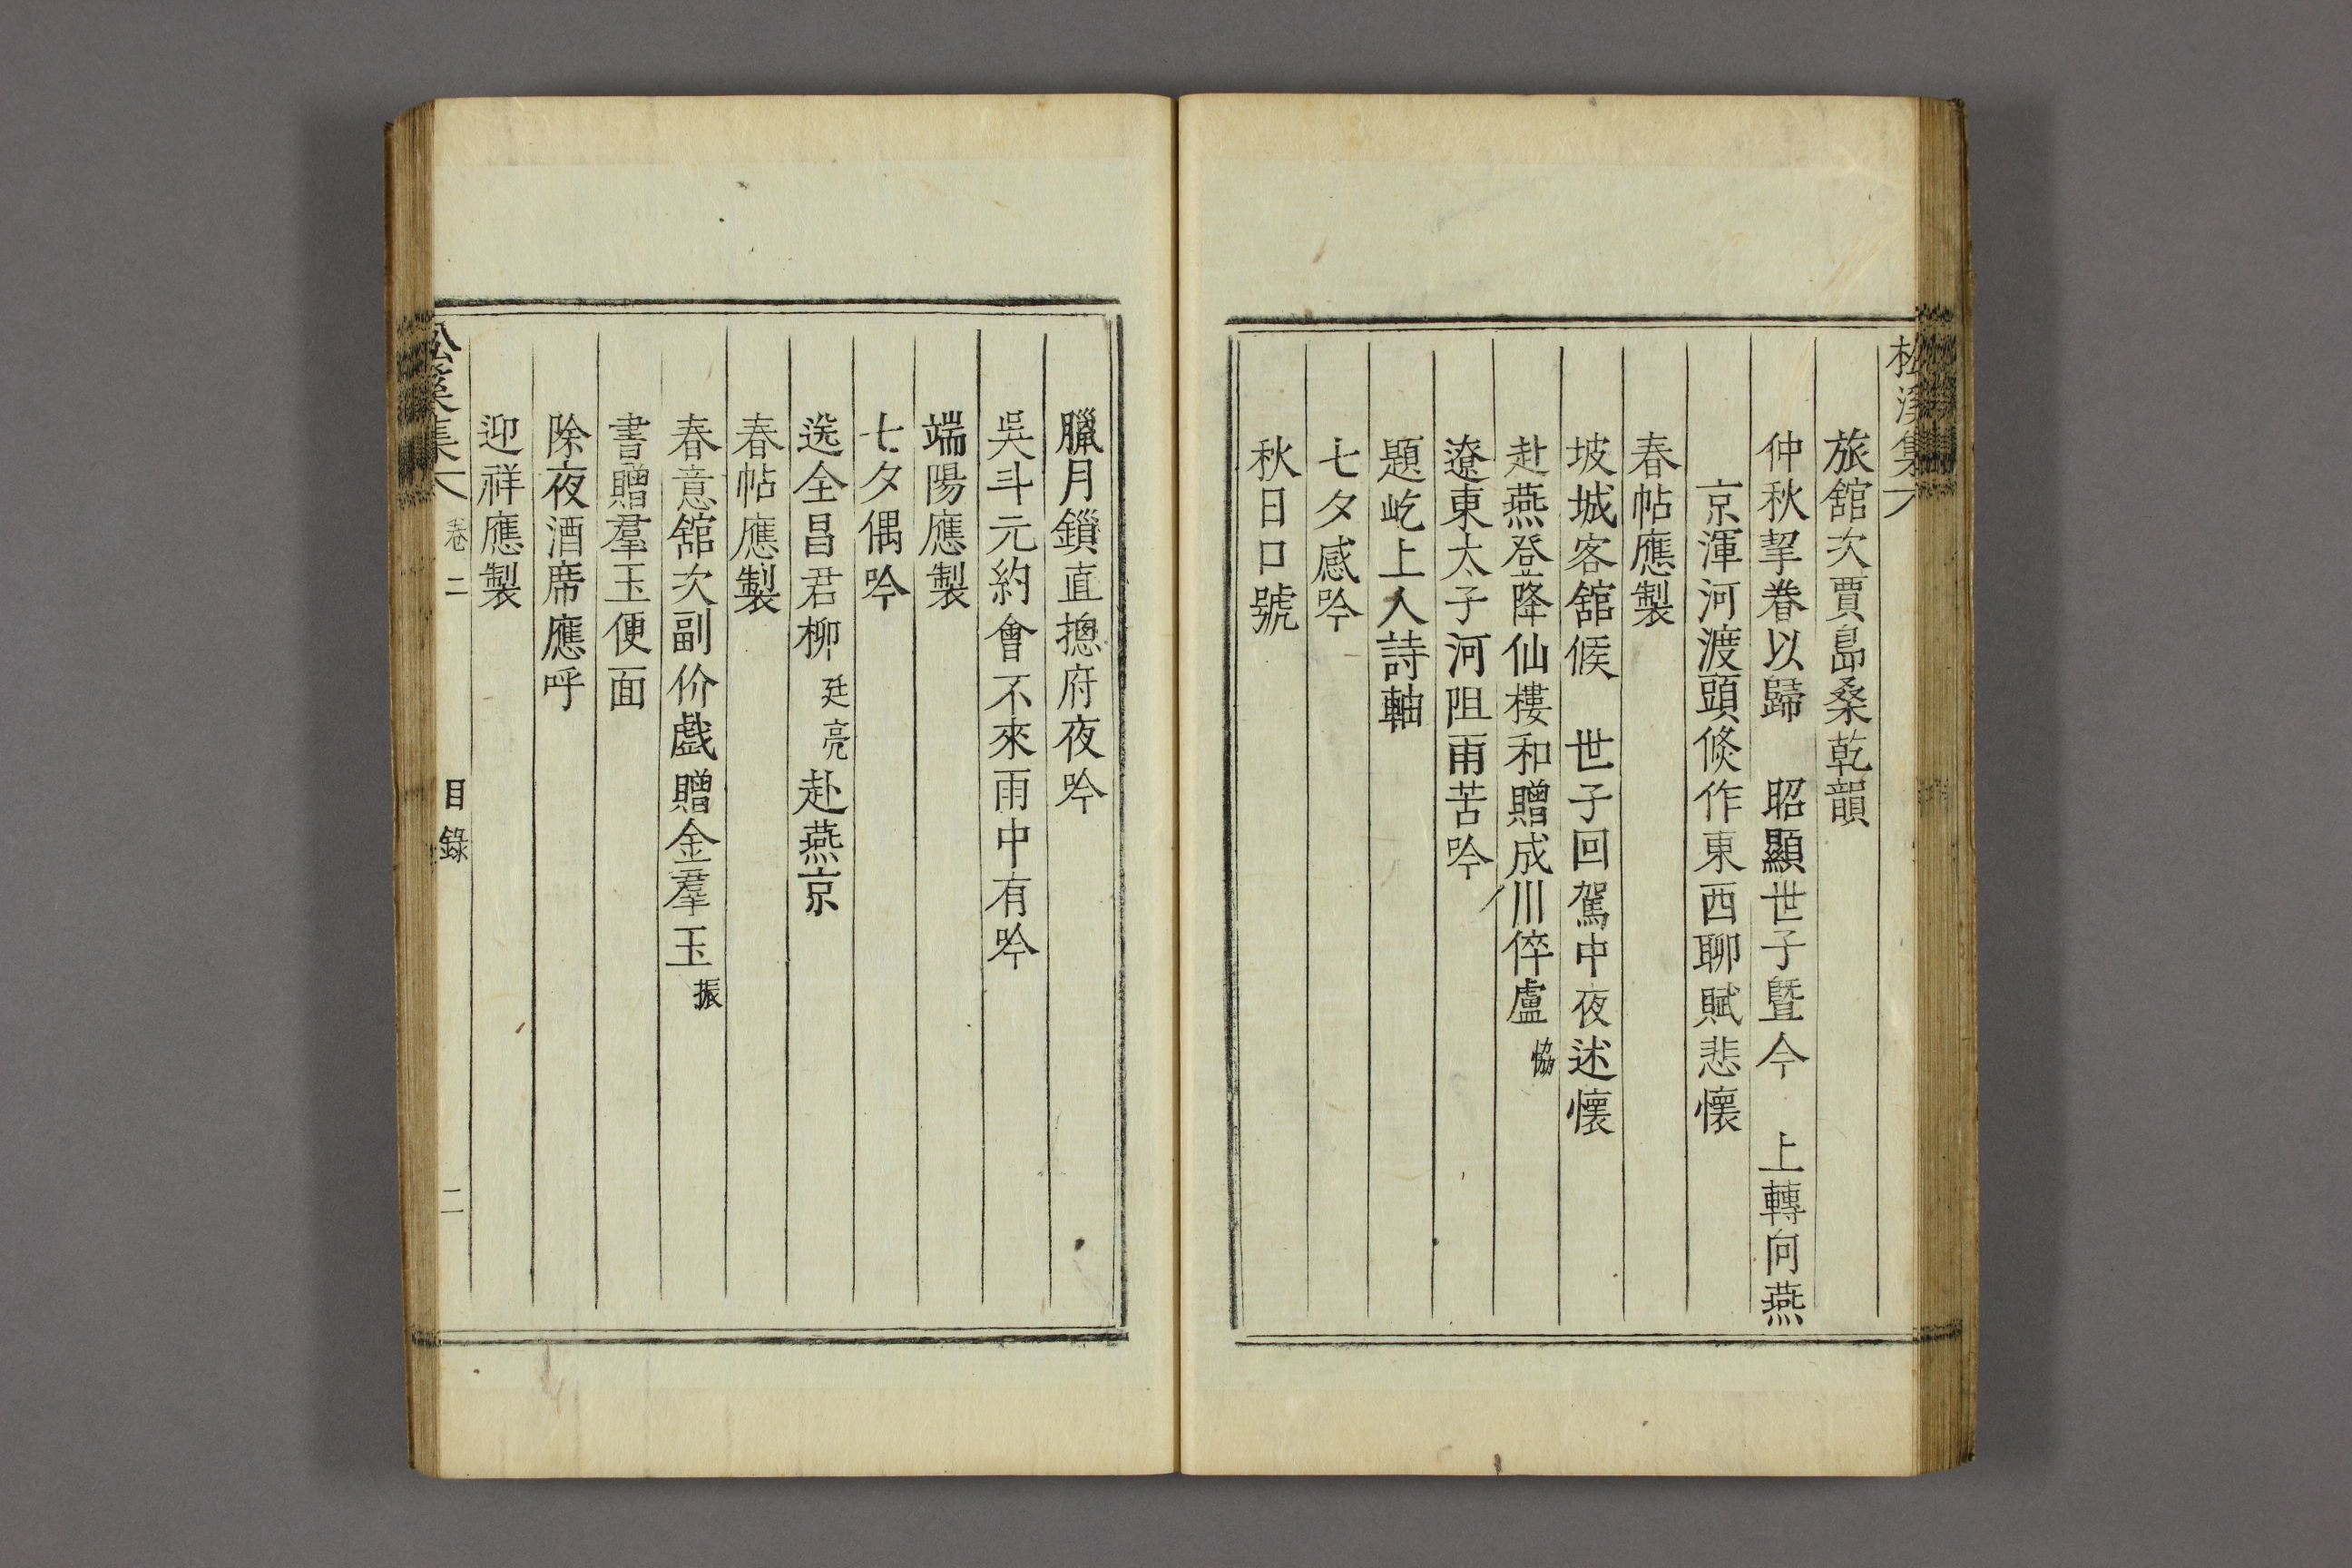 松溪集
旅舘次賈島桑乾韻
仲秋挈眷以歸 昭顯世子曁今 上轉向燕
京渾河渡頭倐作東西聊賦悲懷
春帖應製
坡城客舘候 世子回駕中夜述懷
赴燕登降仙樓和贈成川倅盧協
遼東太子河阻雨苦吟
題屹上人詩軸
七夕感吟
秋日口號
臘月鎖直摠府夜吟
吳斗元約會不來雨中有吟
端陽應製
七夕偶吟
送全昌君柳廷亮赴燕京
春帖應製
春意舘次副价戲贈金羣玉振
書贈羣玉便面
除夜酒席應呼
迎祥應製
松溪集 卷二 目錄 二